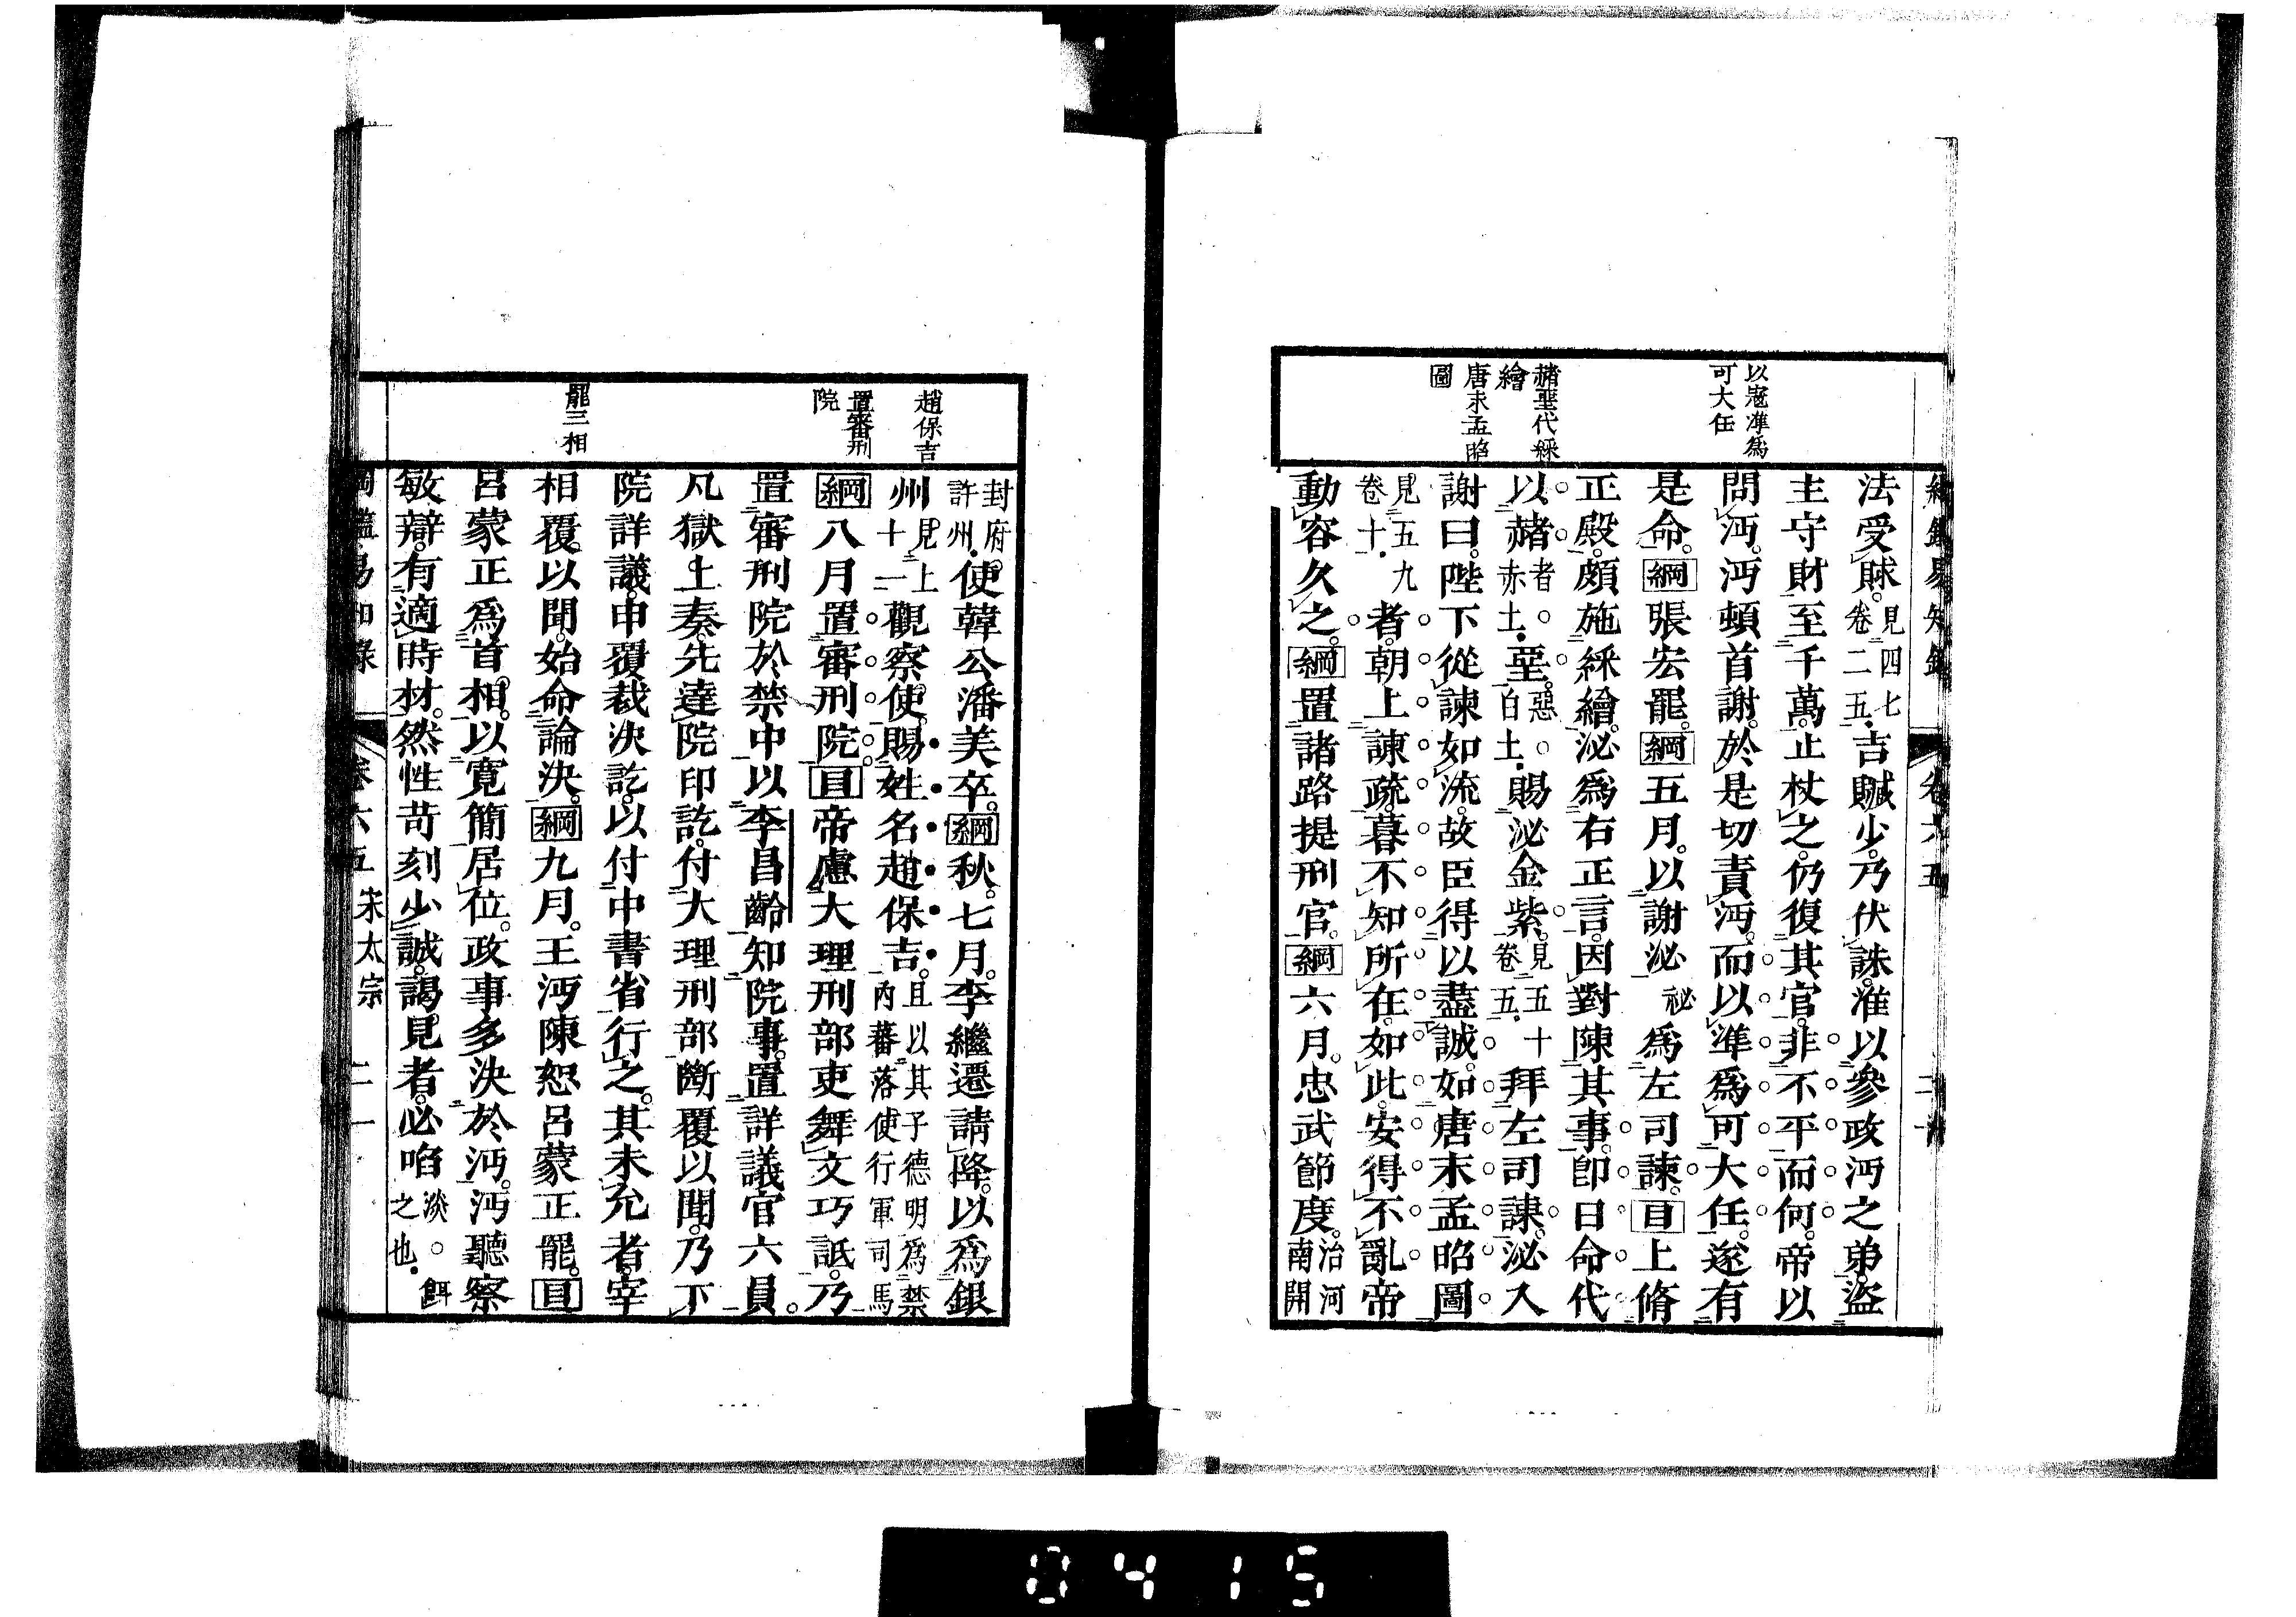 以寇準爲
可大任
赭堊代綵
繪
唐末孟昭
圖
法受財。見四七卷二五。吉贓少。乃伏誅。淮以參政沔之弟。盜
主守財至千萬。止杖之。仍復其官。非不平而何。帝以
問沔。沔頓首謝。於是切責沔。而以準爲可大任。遂有
是命。綱張宏罷。綱五月。以謝泌祕爲左司諫。目上脩
正殿。頗施綵繪。泌爲右正言。因對陳其事。卽日命代
以赭者。赤土。堊。惡。白土。賜泌金紫。見五十卷五。拜左司諫。泌入
謝曰。陛下從諫如流。故臣得以盡誠。如唐末孟昭圖
見五九卷十。者。朝上諫疏。暮不知所在。如此。安得不亂。帝
動容久之。綱置諸路提刑官。綱六月。忠武節度。治河南開
趙保吉
置審刑
院
罷三相
封府許州。使韓公潘美卒。綱秋。七月。李繼遷請降。以爲銀
州見上十一觀察使。賜姓名趙保吉。且以其子德明爲禁內蕃落使行軍司馬
綱八月置審刑院。目帝慮大理刑部吏舞文巧詆。乃
置審刑院於禁中。以李昌齡知院事。置詳議官六員。
凡獄上奏。先達院印訖。付大理刑部斷覆以聞。乃下
院詳議。申覆裁決訖。以付中書省行之。其未允者。宰
相覆以聞。始命論決。綱九月。王沔陳恕呂蒙正罷。目
呂蒙正爲首相。以寬簡居位。政事多決於沔。沔聽察
敏辯。有適時材。然性苛刻少誠。謁見者。必啗淡。餌之也。
綱鑑易知錄 卷六五 宋太宗 二一
0415